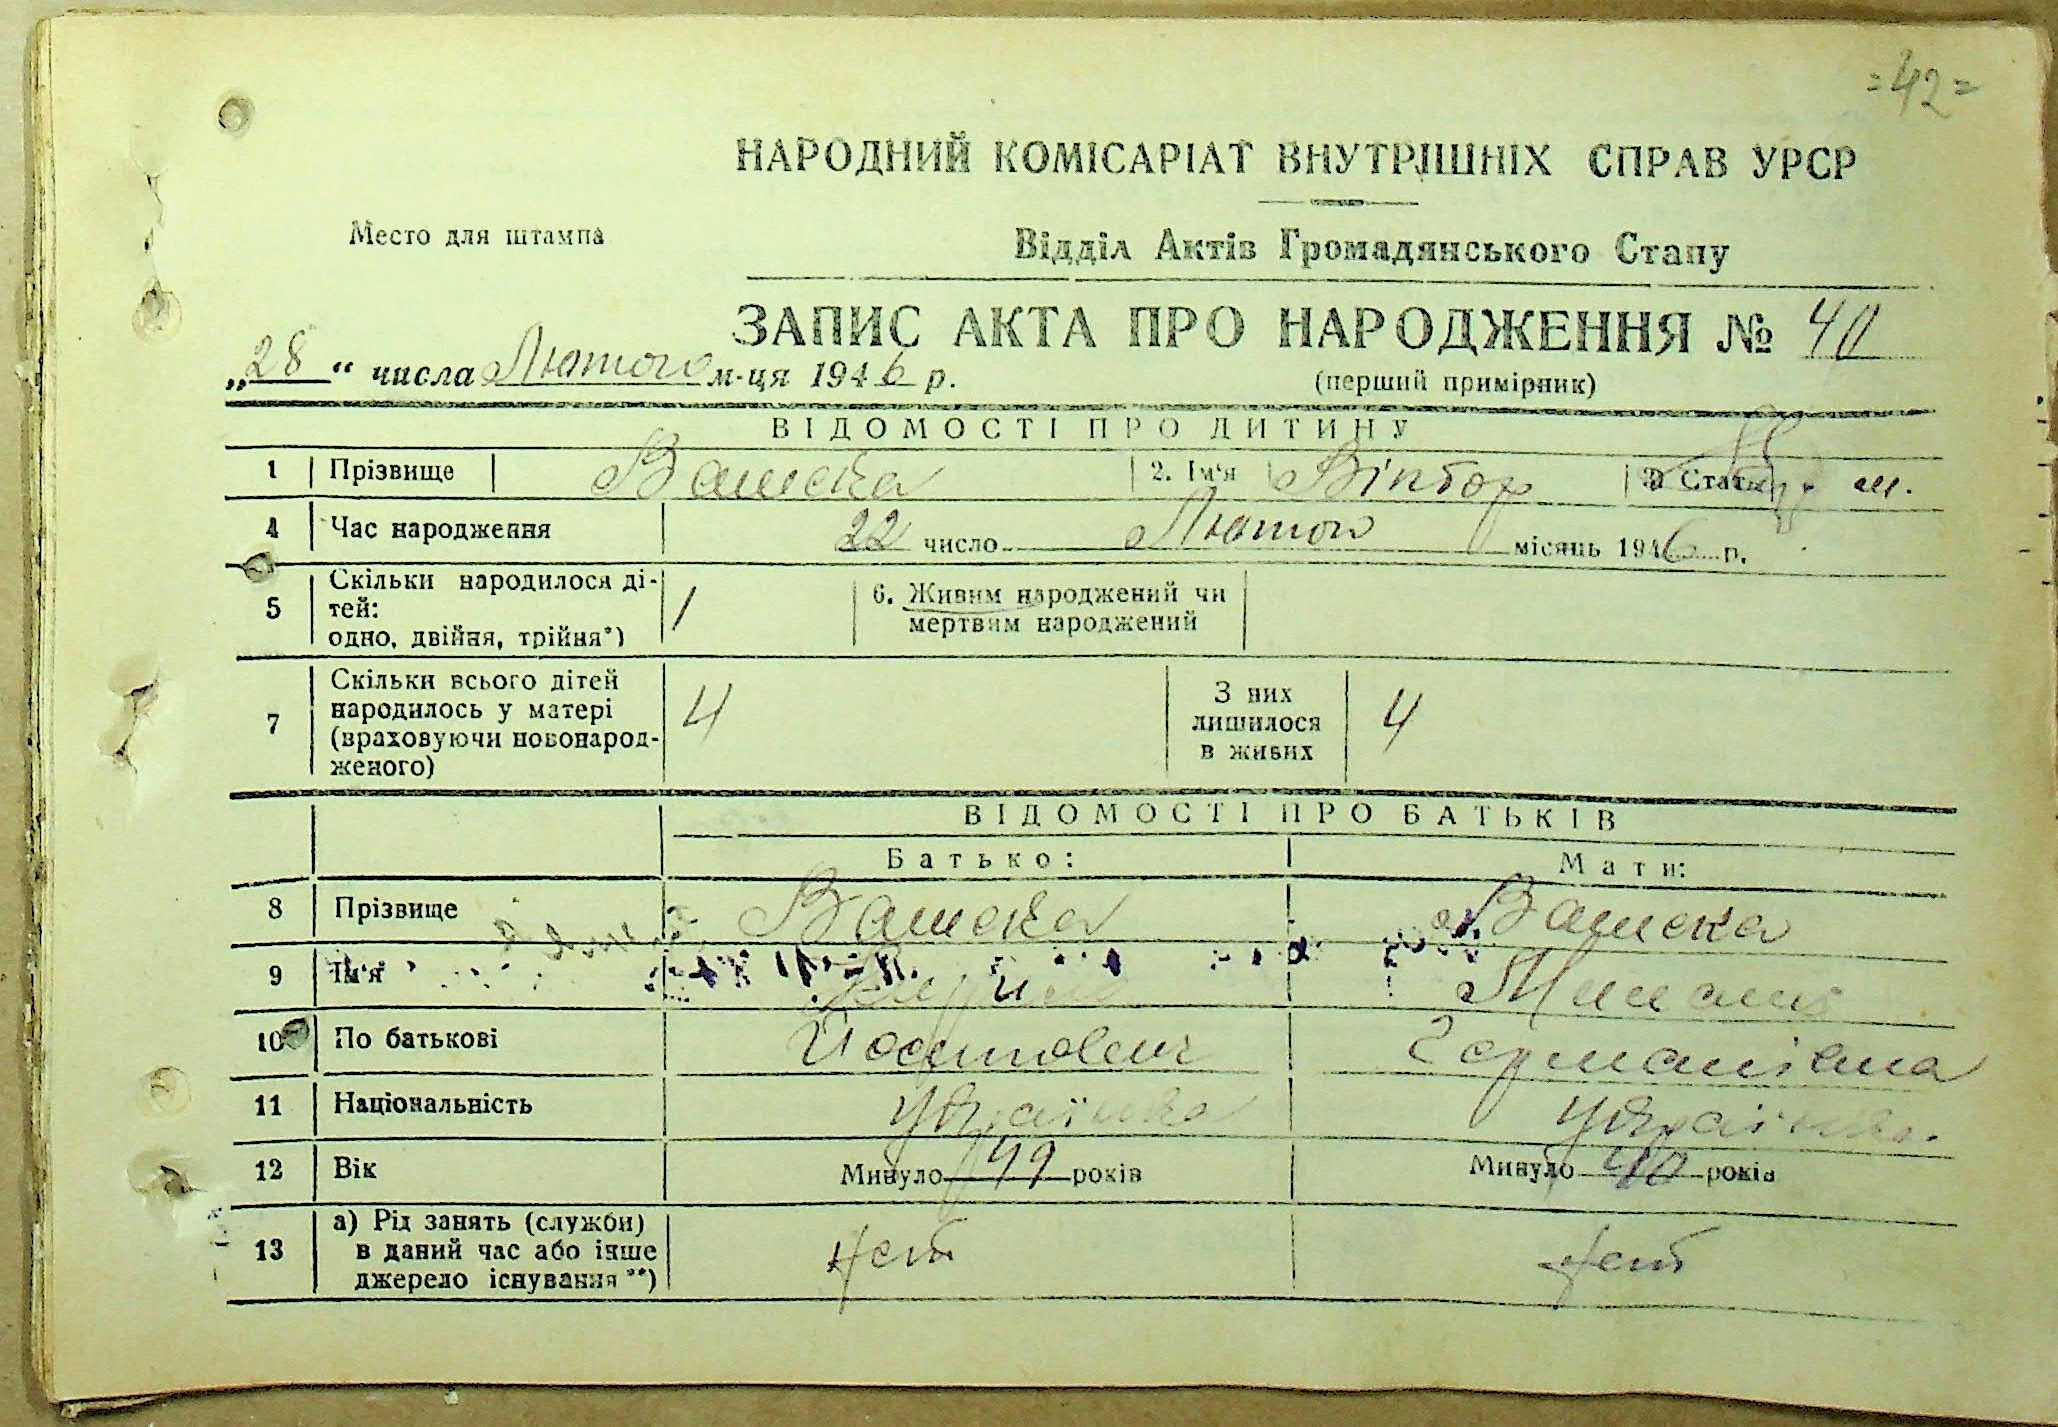 =42=
НАРОДНИЙ КОМІСАРІАТ ВНУТРІШНІХ СПРАВ УРСР
Место для штампа
Відділ Актів Громадянського Стану
ЗАПИС АКТА ПРО НАРОДЖЕННЯ № 40
„28“ числа Лютого м-ця 1946 р.
(перший примірник)
ВІДОМОСТІ ПРО ДИТИНУ
1 Прізвище Вашека 2. Ім'я Віктор 3 Стать ч.
4 Час народження 22 число Лютого місяць 1946 р.
5 Скільки народилося ді-
тей:
одно, двійня, трійня*) 1
6. Живим народжений чи
мертвим народжений
7 Скільки всього дітей
народилось у матері
(враховуючи новонарод-
женого) 4
З них
лишилося
в живих 4
ВІДОМОСТІ ПРО БАТЬКІВ
Батько: Мати:
8 Прізвище Вашека Вашека
9 Ім'я
10 По батькові Йосипович Германівна
11 Національність Українец Українка
12 Вік Минуло 49 років Минуло 40 років
13 а) Рід занять (служби)
в даний час або інше
джерело існування**)